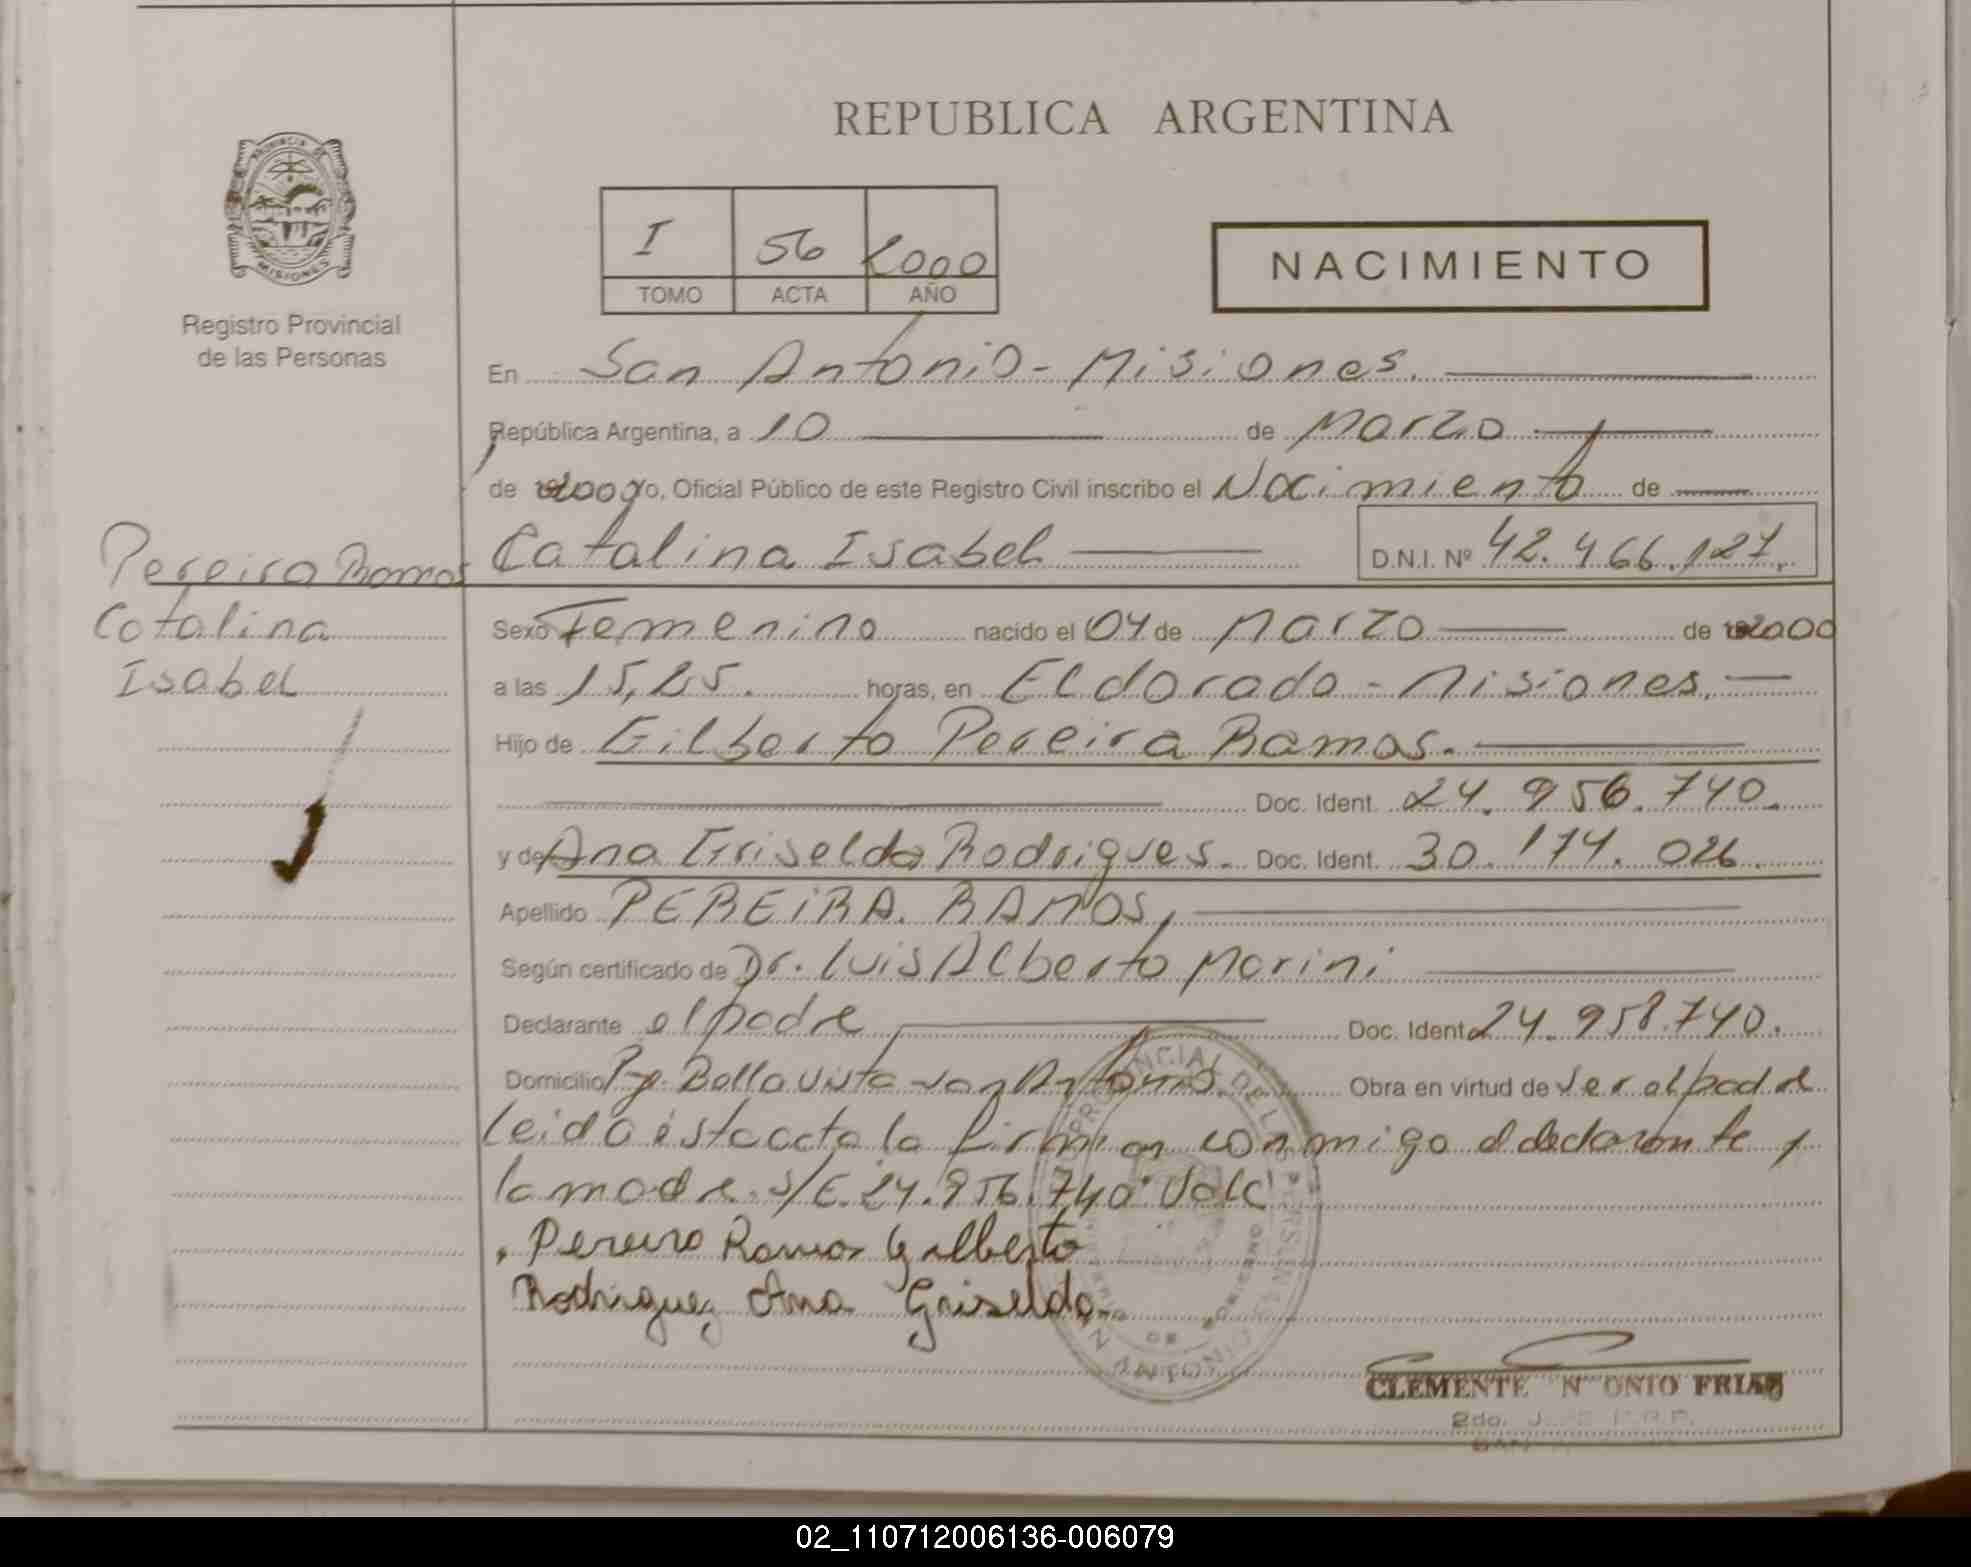 REPUBLICA ARGENTINA
PROVINCIA DE
MISIONES
Registro Provincial
de las Personas
I 56 2000
TOMO ACTA AÑO
NACIMIENTO
En San Antonio - Misiones.
República Argentina, a 10 de Marzo
de 2000 yo, Oficial Público de este Registro Civil inscribo el Nacimiento de
Catalina Isabel D.N.I. Nº 42.466.127.
Pereira Ramos
Catalina
Isabel
Sexo Femenino nacido el 04 de Marzo de 2000
a las 15,25. horas, en Eldorado - Misiones.
Hijo de Gilberto Pereira Ramos.
Doc. Ident. 24.956.740.
y de Ana Griselda Rodrigues. Doc. Ident. 30.174.026.
Apellido PEREIRA RAMOS,
Según certificado de Dr. Luis Alberto Morini
Declarante el padre, Doc. Ident. 24.958.740.
Domicilio Bella Vista San Antonio. Obra en virtud de ser el padre
leida esta acta la firman conmigo el declarante y
la madre. S/E. 24.956.740 Vale
Pereira Ramos Gilberto
Rodriguez Ana Griselda
CLEMENTE ONIO FRIAS
2do.
02_110712006136-006079